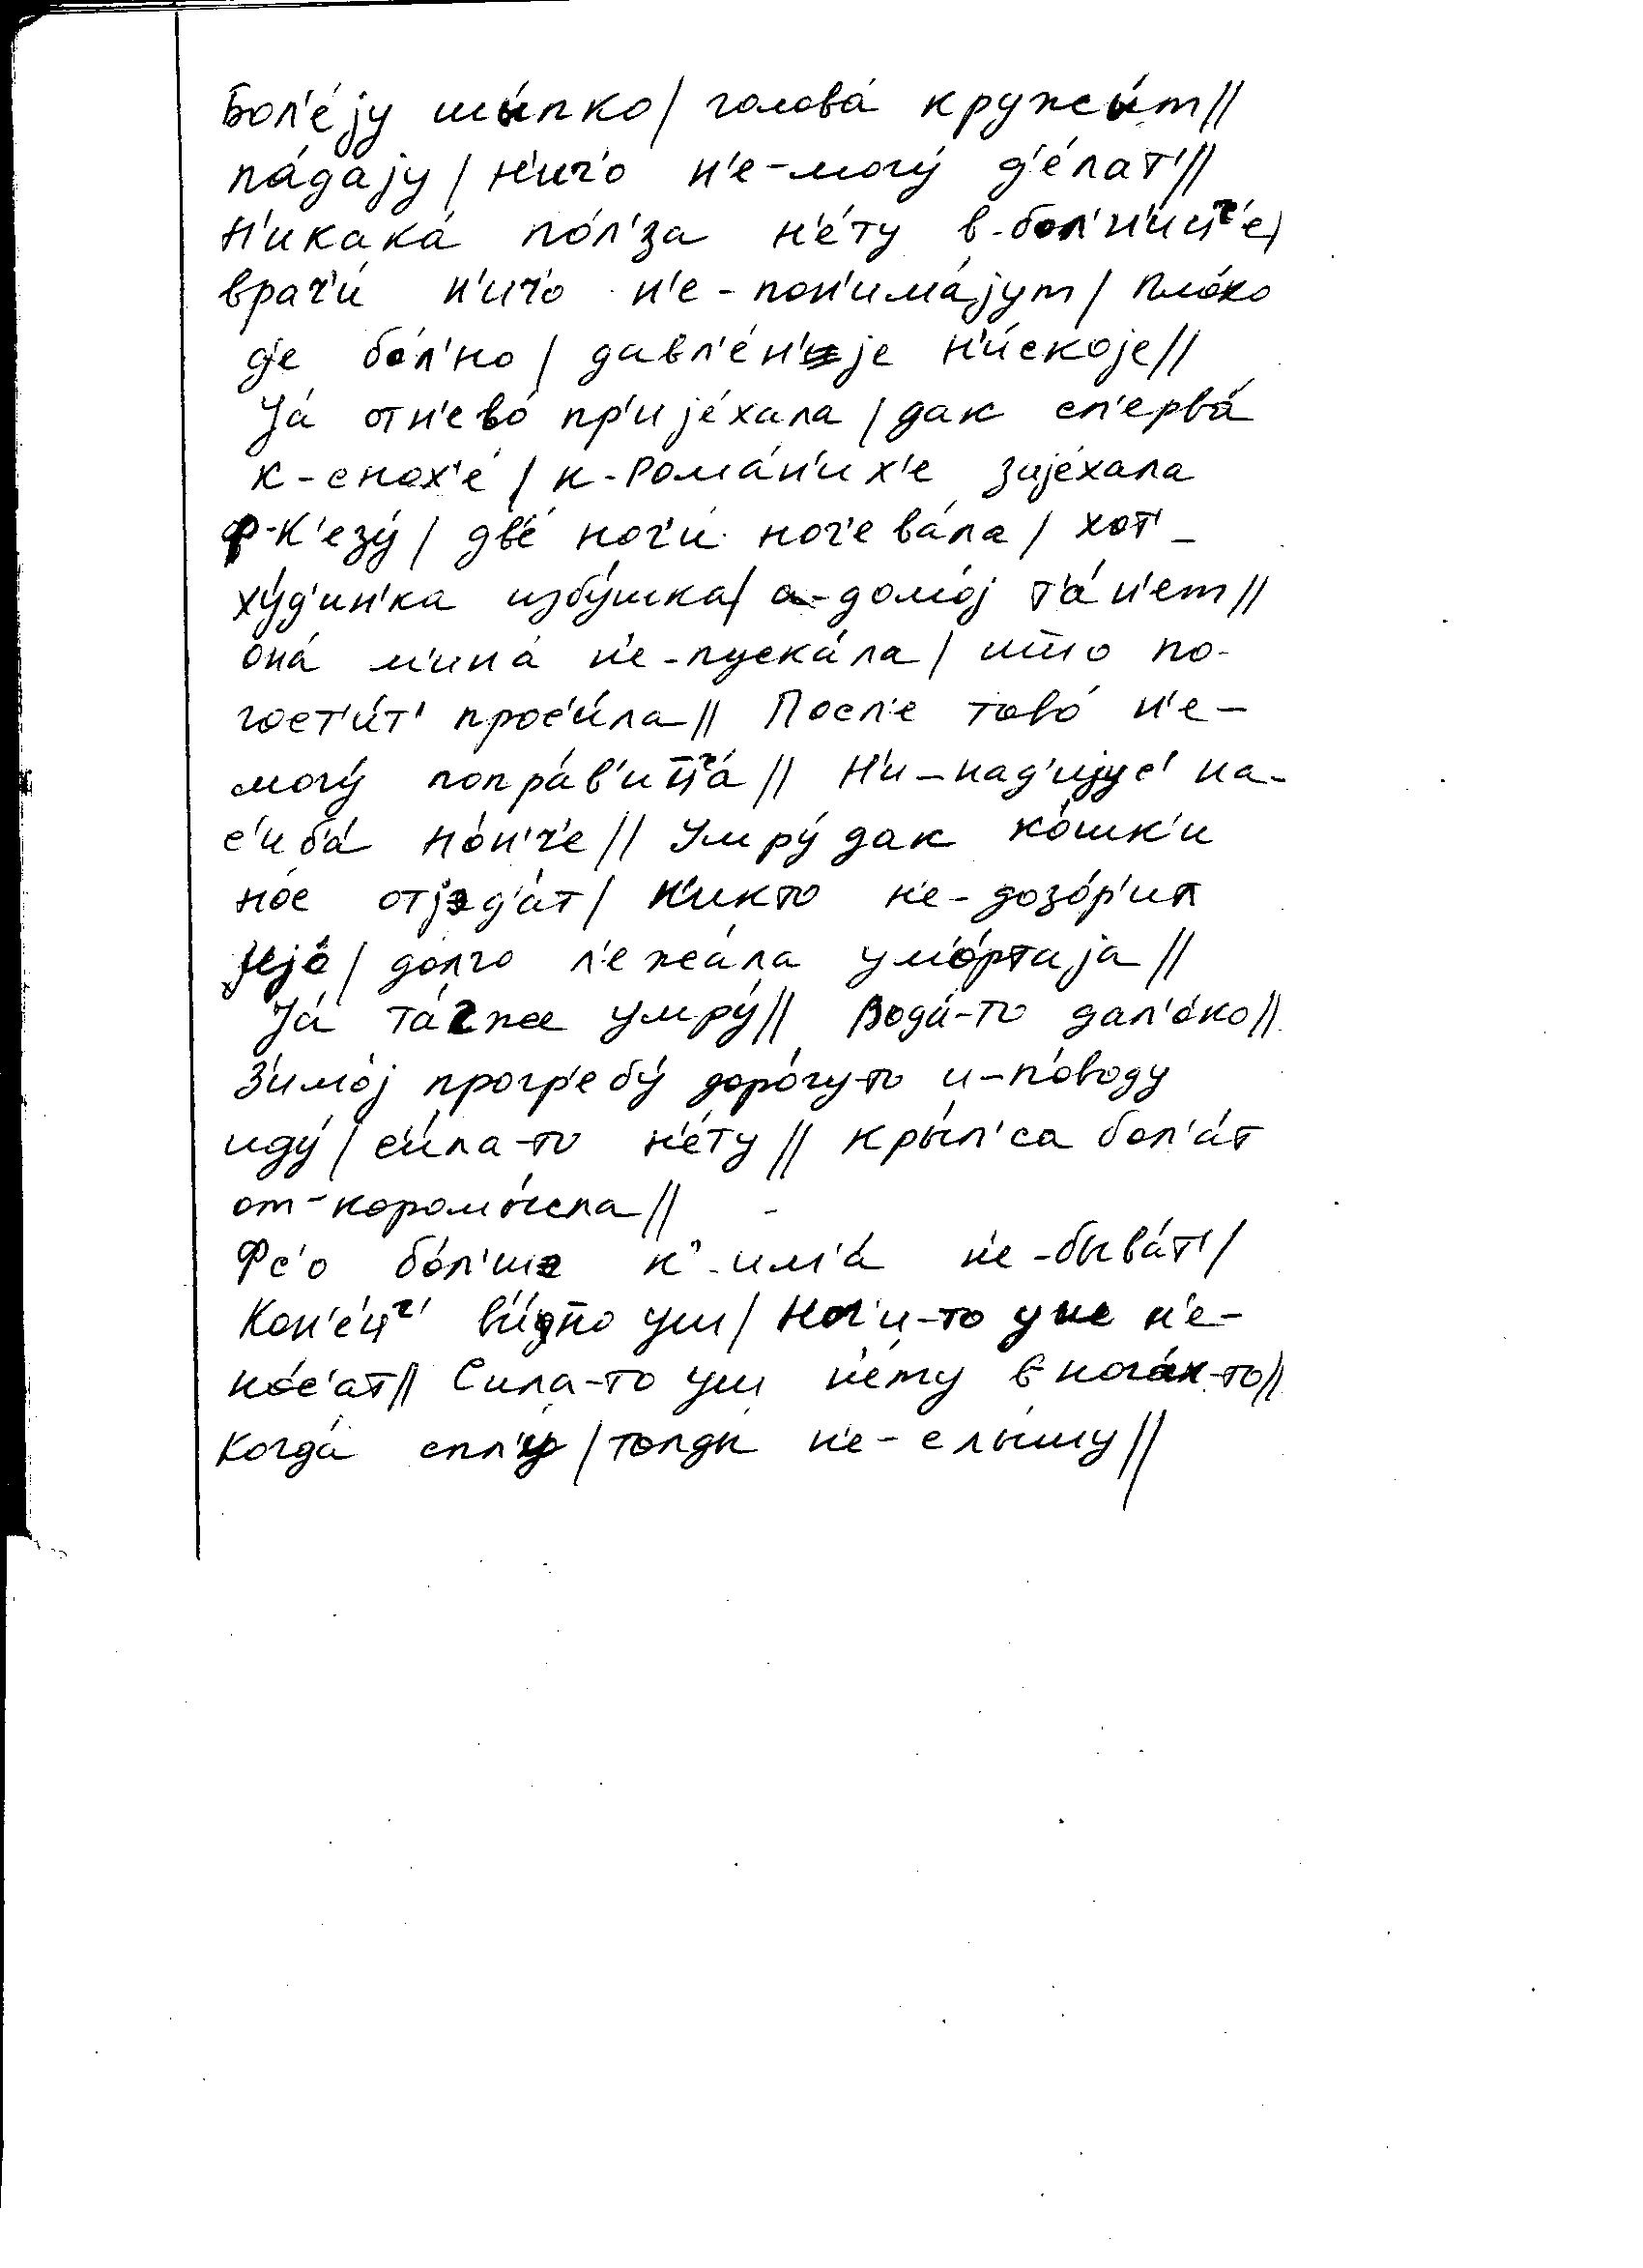 Бол'е́ју шы́пко/ голова́ кружы́т//
па́дају / н'ич'о н'е-могу́ д'е́лат'//
Н'икака́ по́л'за н'е́ту в-бол'н'иц^ч'е/
врач'и́ н'ич'о н'е-пон'има́јут/ Пло́ко
д'е бо́л'но / давл'е́н'је н'и́скоје//
Ја́ отн'ево́ пр'ије́хала / дак сп'ерва́
к-снох'е́ / к-Рома́н'их'е зије́хала
ф-К'езу́ / дв'е́ ноч'и́ ноч'ева́ла / хот'-
ху́д'ин'ка избу́шка/ а-домо́ј т'а́н'ет//
она́ м'ин'а́ н'е-пуска́ла / што по-
гост'и́т' прос'и́ла// Посл'е тово́ н'е-
могу́ попра́в'иц^ч'а́ // Н'и-над'ијус' на-
с'иб'а́ но́н'ч'е// Умру́ дак ко́шк'и
но́с отјэд'а́т / Н'икто н'е-дозо́р'ил
јејо́ / до́лго л'ежа́ла ум'о́ртаја //
Ја́ та́гже умру́// Вода́-то дал'о́ко//
З'имо́ј прогр'ебу́ доро́гу-то и-по́воду
иду́ / с'и́ла-то н'е́ту // кры́л'са бол'а́т
от-коромы́сла//
Фс'о бо́л'шэ к^им'а́ н'е-быва́т'/
Кон'е́ц^ч' в'и́дно уш/ Ноч'и-то уже н'е-
но́с'ат// Сила-то уш н'е́ту в нога́х-то//
Когда́ спл'у́ / толды́ н'е-слы́шу//